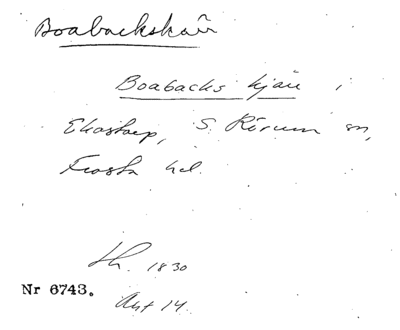 Boabackskärr
Boabacks kjärr i
Ekastorp, S. Rörum sn,
Frosta hd.
Lh. 1830
Nr 6743. Akt 14.